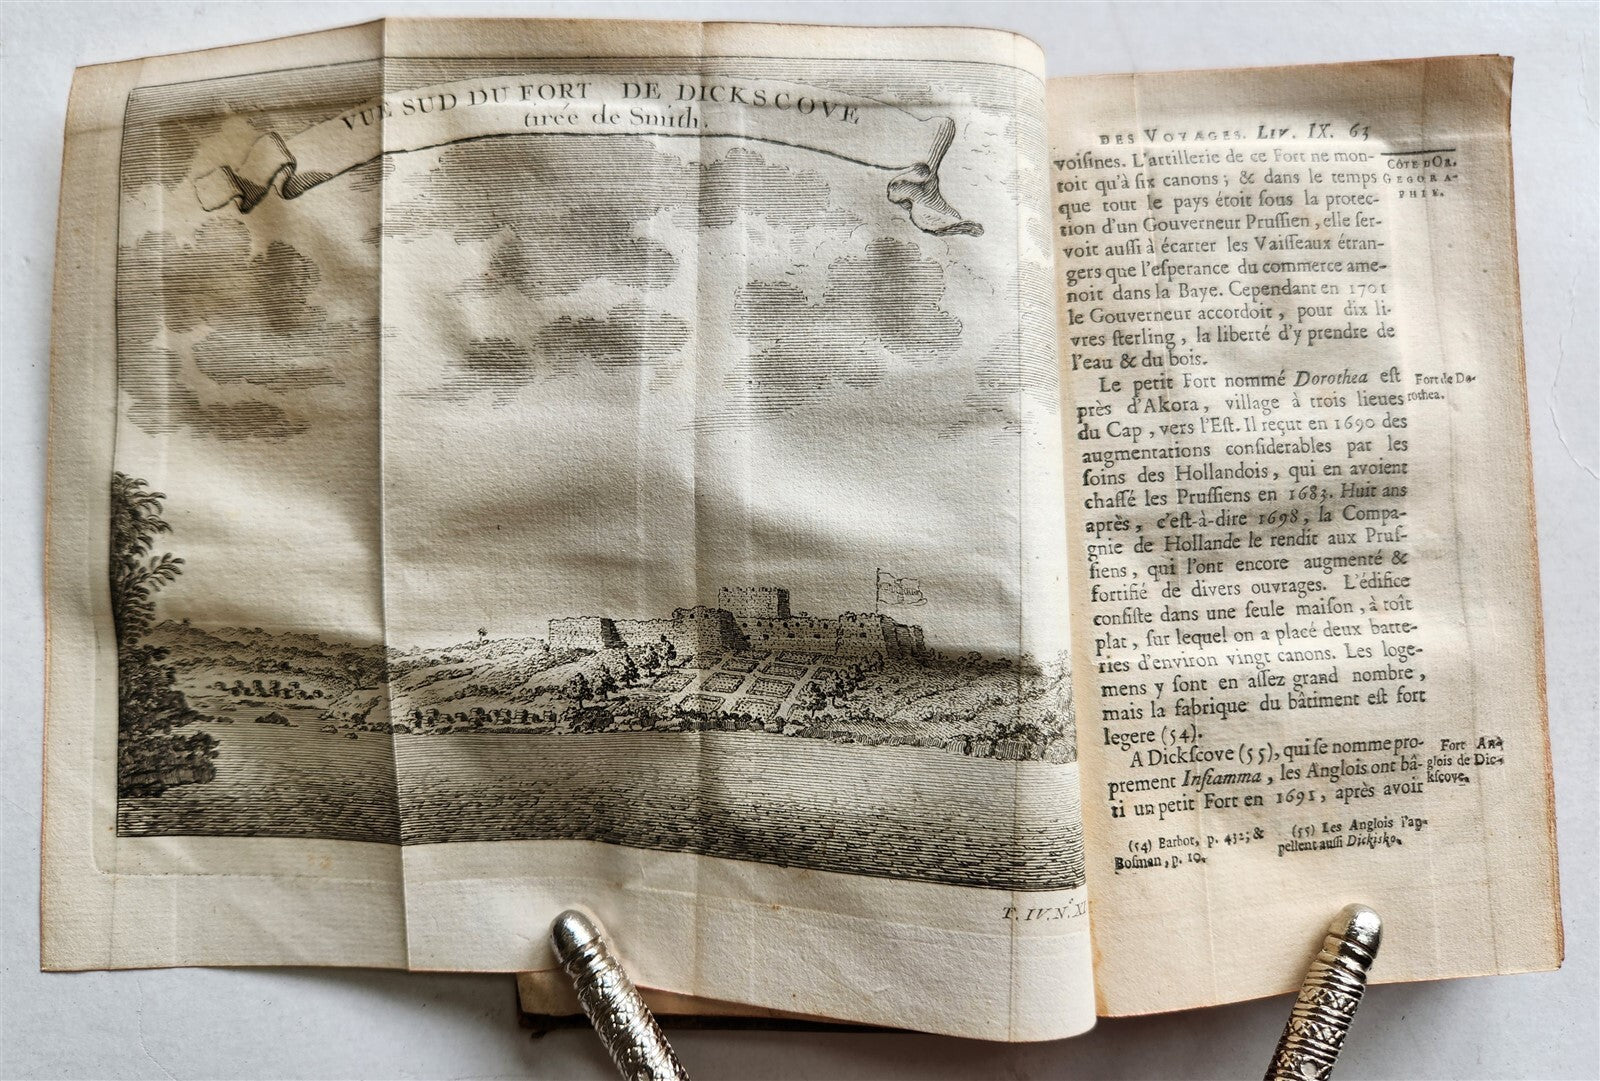 VUE SUD DU FORT DE DICKSCOVE,
tirée de Smith.
T. IV. N.º XI
DES VOYAGES. LIV. IX. 63
voiſines. L'artillerie de ce Fort ne mon-
toit qu'à ſix canons ; & dans le temps
que tout le pays étoit ſous la protec-
tion d'un Gouverneur Pruſſien, elle ſer-
voit auſſi à écarter les Vaiſſeaux étran-
gers que l'eſperance du commerce ame-
noit dans la Baye. Cependant en 1701
le Gouverneur accordoit, pour dix li-
vres ſterling, la liberté d'y prendre de
l'eau & du bois.
CÔTE D'OR.
GEOGRA-
PHIE.
Le petit Fort nommé Dorothea eſt
près d'Akora, village à trois lieues
du Cap, vers l'Eſt. Il reçut en 1690 des
augmentations conſiderables par les
ſoins des Hollandois, qui en avoient
chaſſé les Pruſſiens en 1683. Huit ans
après, c'eſt-à-dire 1698, la Compa-
gnie de Hollande le rendit aux Pruſ-
ſiens, qui l'ont encore augmenté &
fortifié de divers ouvrages. L'édifice
conſiſte dans une ſeule maiſon, à toît
plat, ſur lequel on a placé deux batte-
ries d'environ vingt canons. Les loge-
mens y ſont en aſſez grand nombre,
mais la fabrique du bâtiment eſt fort
legere (54).
Fort de Do-
rothea.
A Dickſcove (55), qui ſe nomme pro-
prement Inſiamma, les Anglois ont bâ-
ti un petit Fort en 1691, après avoir
Fort An-
glois de Dic-
kſcove.
(54) Barbot, p. 432; &
Boſman, p. 10.
(55) Les Anglois l'ap-
pellent auſſi Dickisko.